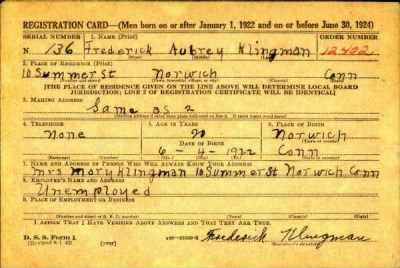 REGISTRATION CARD—(Men born on or after January 1, 1922 and on or before June 30, 1924)
SERIAL NUMBER 1. NAME (Print) ORDER NUMBER
N 136 Frederick Aubrey Klingman 12402
2. PLACE OF RESIDENCE (Print)
10 Summer St Norwich Conn
[THE PLACE OF RESIDENCE GIVEN ON THE LINE ABOVE WILL DETERMINE LOCAL BOARD
JURISDICTION; LINE 2 OF REGISTRATION CERTIFICATE WILL BE IDENTICAL]
3. MAILING ADDRESS
Same as 2
4. TELEPHONE 5. AGE IN YEARS 6. PLACE OF BIRTH
None 20 Norwich
DATE OF BIRTH
6-4-1922 Conn
7. NAME AND ADDRESS OF PERSON WHO WILL ALWAYS KNOW YOUR ADDRESS
Mrs Mary Klingman 10 Summer St Norwich Conn
8. EMPLOYER'S NAME AND ADDRESS
Unemployed
9. PLACE OF EMPLOYMENT OR BUSINESS
I AFFIRM THAT I HAVE VERIFIED ABOVE ANSWERS AND THAT THEY ARE TRUE.
D. S. S. FORM 1
(over) Frederick Klingman